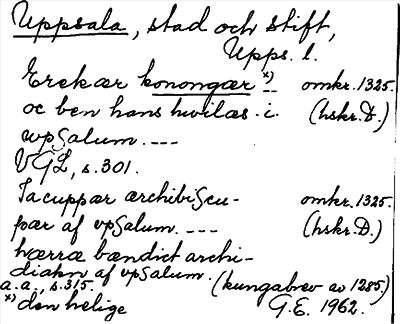 Uppsala, stad och stift,
Upps. l.
Erekær konongær *) -- omkr. 1325.
oc ben hans hwilæs. i. (hskr. D.)
upsalum. ---
VGL, s. 301.
Iacuppær ærchibiscu- omkr. 1325.
pær af upsalum. --- (hskr. D.)
hærræ bændict archi-
diakn af upsalum. (kungabrev av 1285)
a.a., s. 315.
*) den helige G.E. 1962.